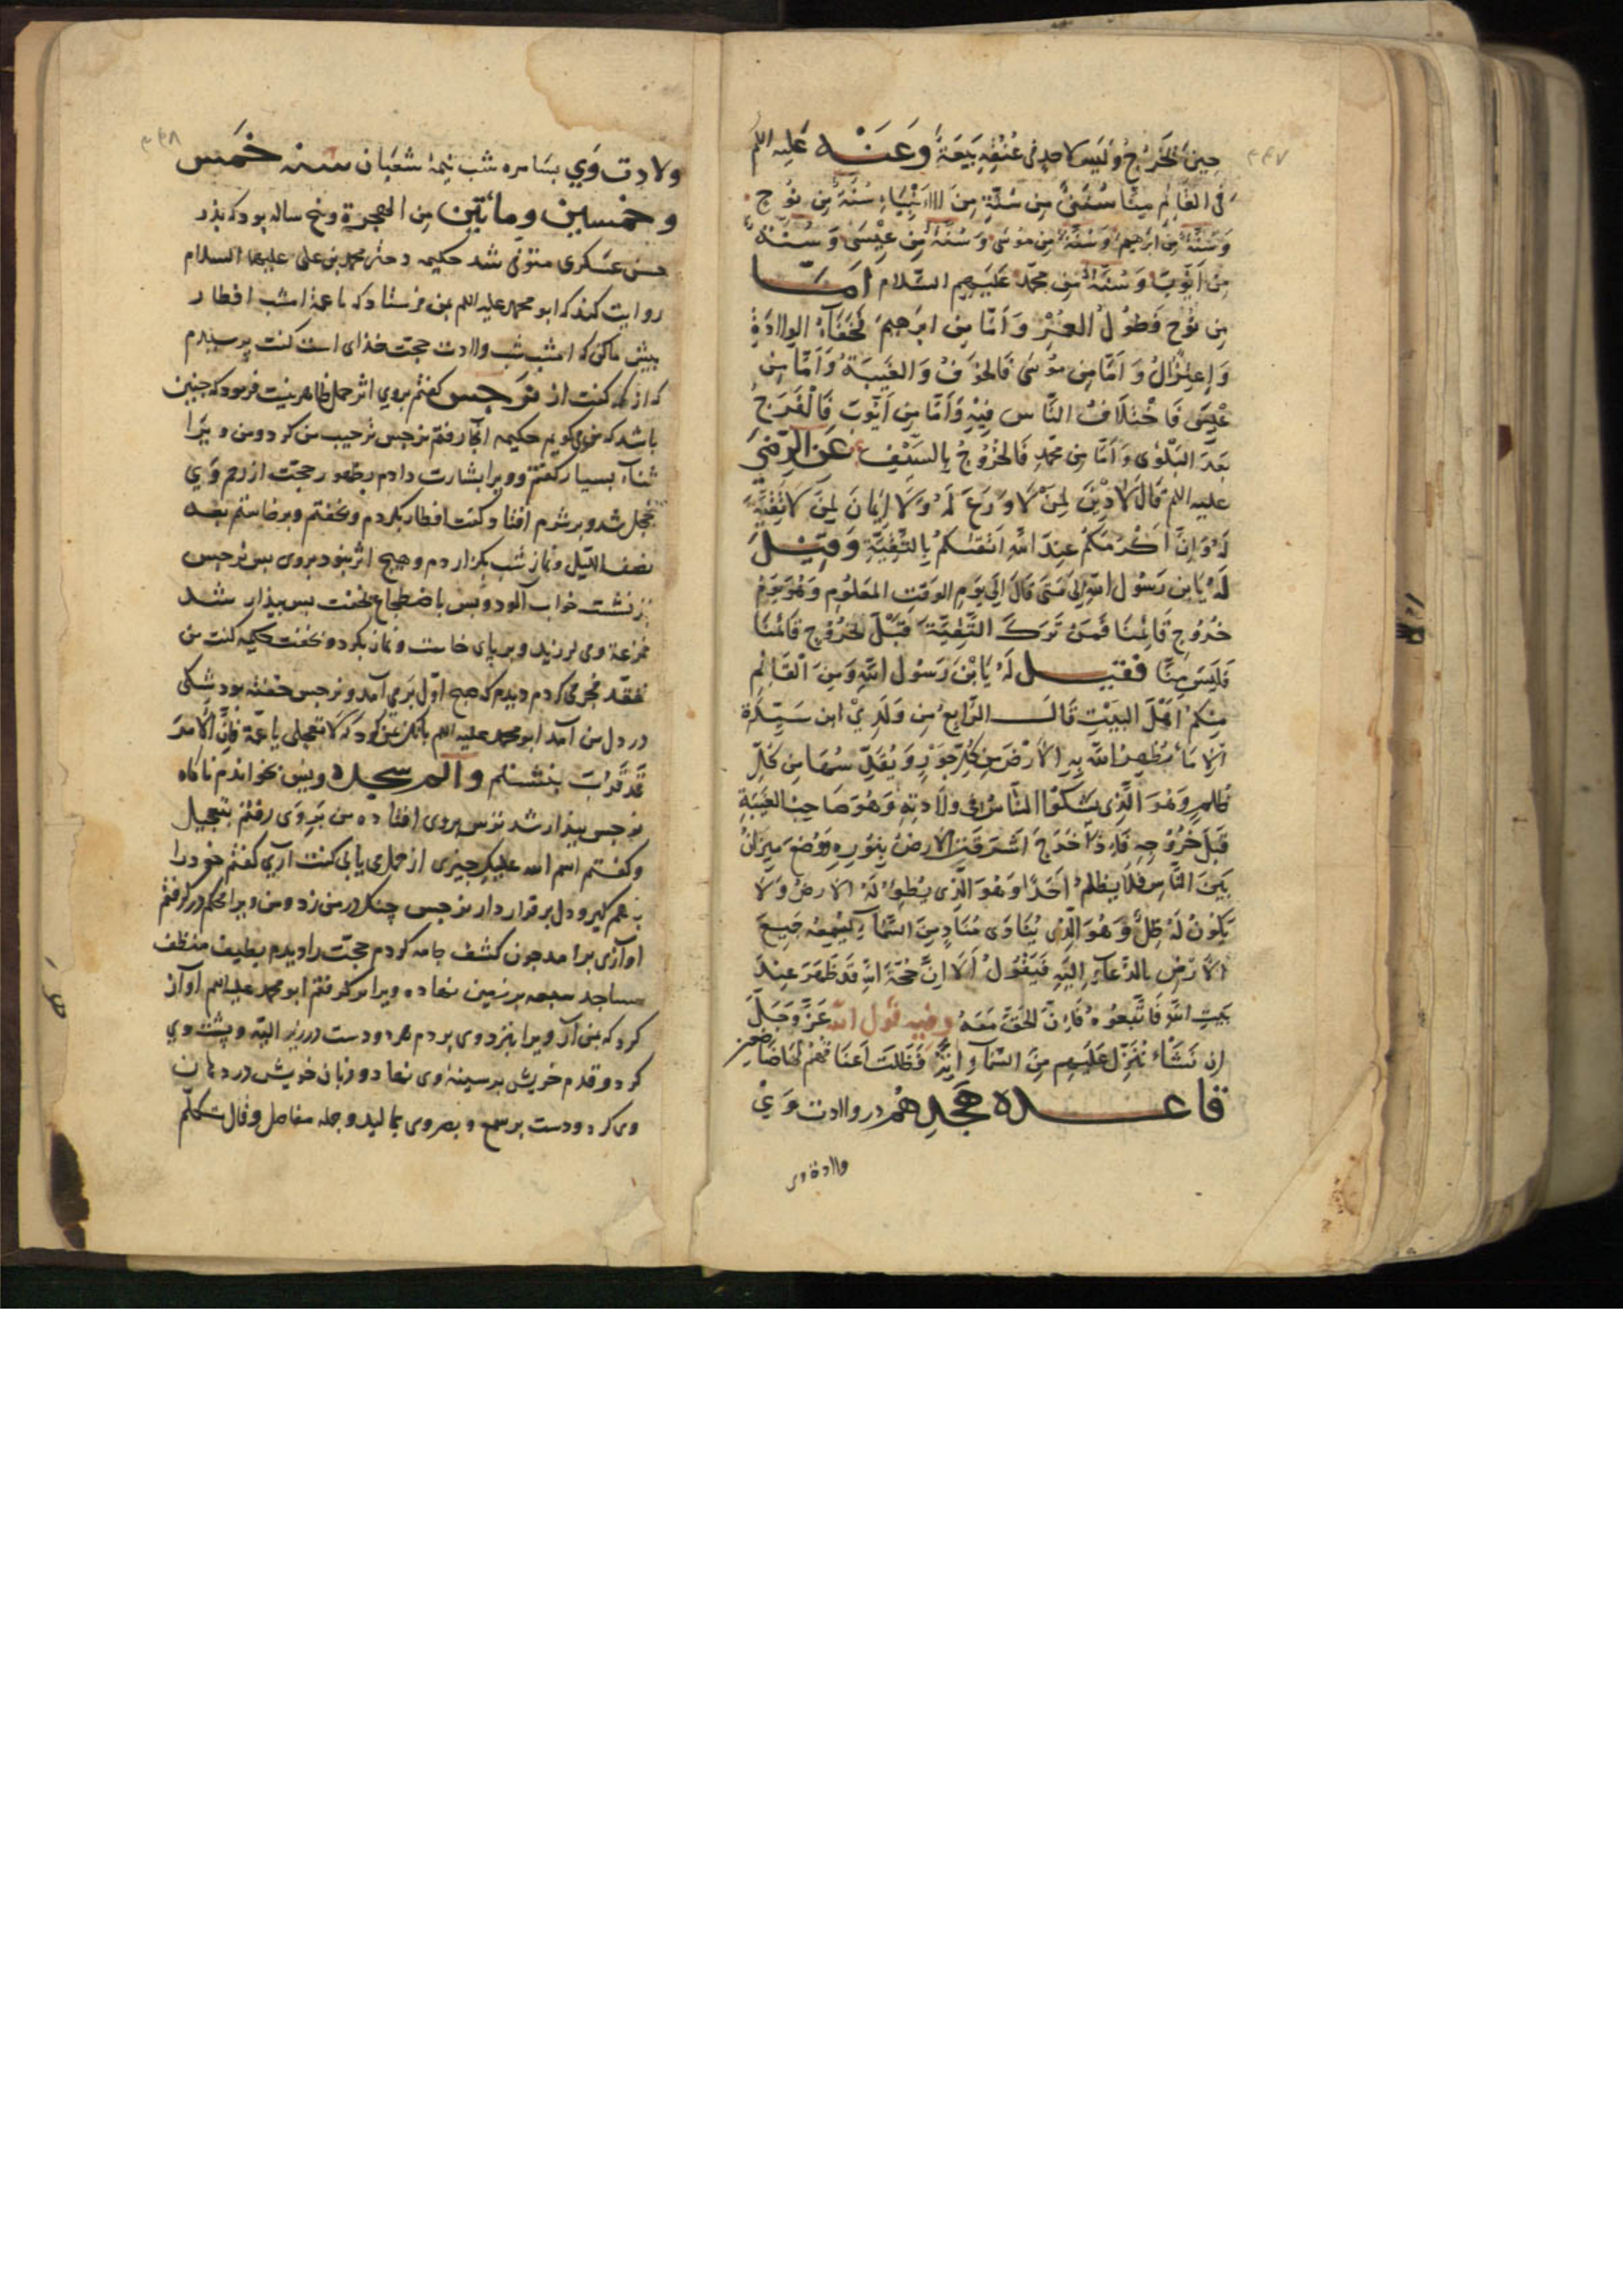 ۴۴۷
حِينَ الخُرُجُ وَلَيسَ لاحدٍ فى عُنُقِهِ بَيعَةٌ وَعَنْه عَلَيه اللم
فى القائم مِنَّا سُنَنٌ مِن سُنَّةٍ مِنَ الاانبِيَاءِ سُنَّةٌ مِن نوُح
وَسُنَّةٌ مِن ابرهِيم وَسُنَّةٌ مِن موُسَى وَسُنَّةٌ مِن عِيْسَى وَسُنَّةٌ
مِن اَيّوُبَ وَسُنَّةٌ مِن محمّد عَلَيهِم السّلام اَمَّا
مِن نوُح فَطوُلُ العُمْرِ وَاَمّا مِن ابرَهِيمَ فَخَفَاءُ الوِلاادَةِ
وَاِعتِزَالُ وَاَمّا مِن موُسَى فَالخَوفُ وَالغَيبَةُ وَاَمّا مِن
عيْسَى فَاختِلَافُ النَّاس فِيْهِ وَاَمّا مِن اَيّوُبَ فَالْفَرَجُ
بَعدَ البَلْوٰى وَاَمّا مِن محمّدٍ فَالخُرُوجُ بِالسَّيْفِ عَن الرّضى
عليه اللم قَالَ لَا دِيْنَ لِمَنْ لَا وَرَعَ لَهُ وَلَا اِيْمَانَ لِمَنْ لَا تَقِيَّةَ
لَهُ وَاِنَّ اَكْرَمَكُمْ عِندَ اللّهِ اَتقَيٰكُمْ بِالتَّقِيَّةِ وَقِيْلَ
لَهُ يَا بن رَسُول اللّهِ اِلى مَتَى قَالَ اِلى يَومِ الوَقتِ المَعلُوُمِ وَهُوَ يَومُ
خُرُوجِ قَائِمُنَا فَمَنْ تَرَكَ التَّقِيَّةَ قَبْلَ خُرُوجِ قَائِمُنَا
فَلَيسَ مِنَّا فقيل لَهُ يَا بْنَ رَسُول اللّهِ وَمَن القَائِم
مِنكُمْ اَهْلَ البَيْتِ قَالَ الرَّابعُ مِن وَلَدِيْ ابن سَيّدَةِ
الاِمَاءِ يُطَهِّرُ اللّهُ بِهِ الاَرْضَ مِن كُلِّ جَوْرٍ وَيُقَدِّسُهَا مِن كُلِّ
ظلمٍ وَهُوَ الَّذِى يَشكُّ النّاسُ فى وِلَادَتِهِ وَهُوَ صَاحِبُ الغَيْبَةِ
قَبلَ خُرُوُجِهِ فَاِذَا خَرَجَ اَشرَقَتِ الاَرضُ بِنوُرِهِ وَوُضِعَ مِيزَانُ
بَينَ النَّاسِ فَلَا يَظلِمُ اَحَدٌ اَحَدًا وَهُوَ الَّذِى يُطوٰى لَهُ الاَرضُ وَلَا
يَكوُنُ لَهُ ظِلٌّ وَهُوَ الَّذِى يُنَادِى مُنَادٍ مِنَ السَّمَاءِ لِيَسمَعَهُ جَمِيعَ
الاَرْضِ بالدّعَاءِ اِلَيْهِ فَيَقوُلُ اَلَا اِنَّ حُجّةَ اللّهِ قَد ظَهَرَ عِندَ
بَيتِ اللّهِ فَاتَّبِعوُهُ فَاِنَّ الحَقَّ مَعَهُ وفيه قول اللّه عَزَّ وَجَلَّ
اِن نَشَاْءُ نُنَزِّل عَلَيهِم مِنَ السَّمَاءِ اٰيَةً فَظَلَّت اَعنَاقُهُمْ لَهَا خَاضعِين
قاعده هَجدِهُمْ در ولاادت وَيْ
والادة وى
۴۴۸
ولادت وَي بسَامره شب نِيمهٔ شعبَان سنه خَمس
وخمسين ومائتين مِن الهجرة وپنج ساله بود كه بذر
حسن عَسكرى متوفّى شد حكيمه دختر محمد بن على عليهما السلام
روايت كند كه ابو محمد عليه اللم بمن فرستاد كه يا عمة امشب افطار
بيش ماكن كه امشب شب ولاادت حجت خذاى است كفت پرسيدم
كه از كه كفت از نَرجِس كفتم بروي اثر حمل ظاهر نيست فرمود كه جنين
باشد كه من مى كويم حكيمه آنجا رفتم نرجس ترحيب من كرد ومن ويرا
ثناء بسيار كفتم وويرا بشارت دادم بظهور حجت از رحم وَي
خجل شد وبر شرم افتاد وكفت افطار بكردم وبخفتم وبرخاستم بعد
نصف الليل ونماز شب بكزاردم وهيج اثر نبود بروى بس نرجس
بنشست خواب آلود وبس باضطجاع بخفت بس بيذار شد
فزعة ومى لرزيد وبر پاى خاست ونماز بكرد وبخفت حكيمه كفت من
تفقّد فجر مى كردم ديدم كه صبح اوّل برمى آمد ونرجس خفته بود شكى
در دل من آمد ابو محمد عليه اللم بانك بمن كرد كه لا تعجلى يا عمّة فاِنَّ الاَمرَ
قَد قَرُبَ بنشستم والم سجده ويس بخواندم ناكاه
نرجس بيذار شد ترس بروى افتاده من نزد وَى رفتم بتعجيل
وكفتم اسم الله عليك جيزى از حمل مى يابى كفت آرى كفتم خود را
بهم كير ودل بر قرار دار نرجس چنك در من زد ومن ويرا محكم در كرفتم
اوآزى برآمد جون كشف جامه كردم حجت را ديدم نظيف منظف
مساجد سبعه بر زمين نهاده ويرا بر كرفتم ابو محمد عليه اللم آواز
كرد كه بمن آر ويرا بنزد وى بردم هر دو دست در زير اليه وپشت وي
كرد وقدم خويش بر سينهٔ وى نهاد وزبان خويش در دهان
وى كرد ودست بر سمع وبصر وى بماليد وجمله مفاصل وقال تكلّم